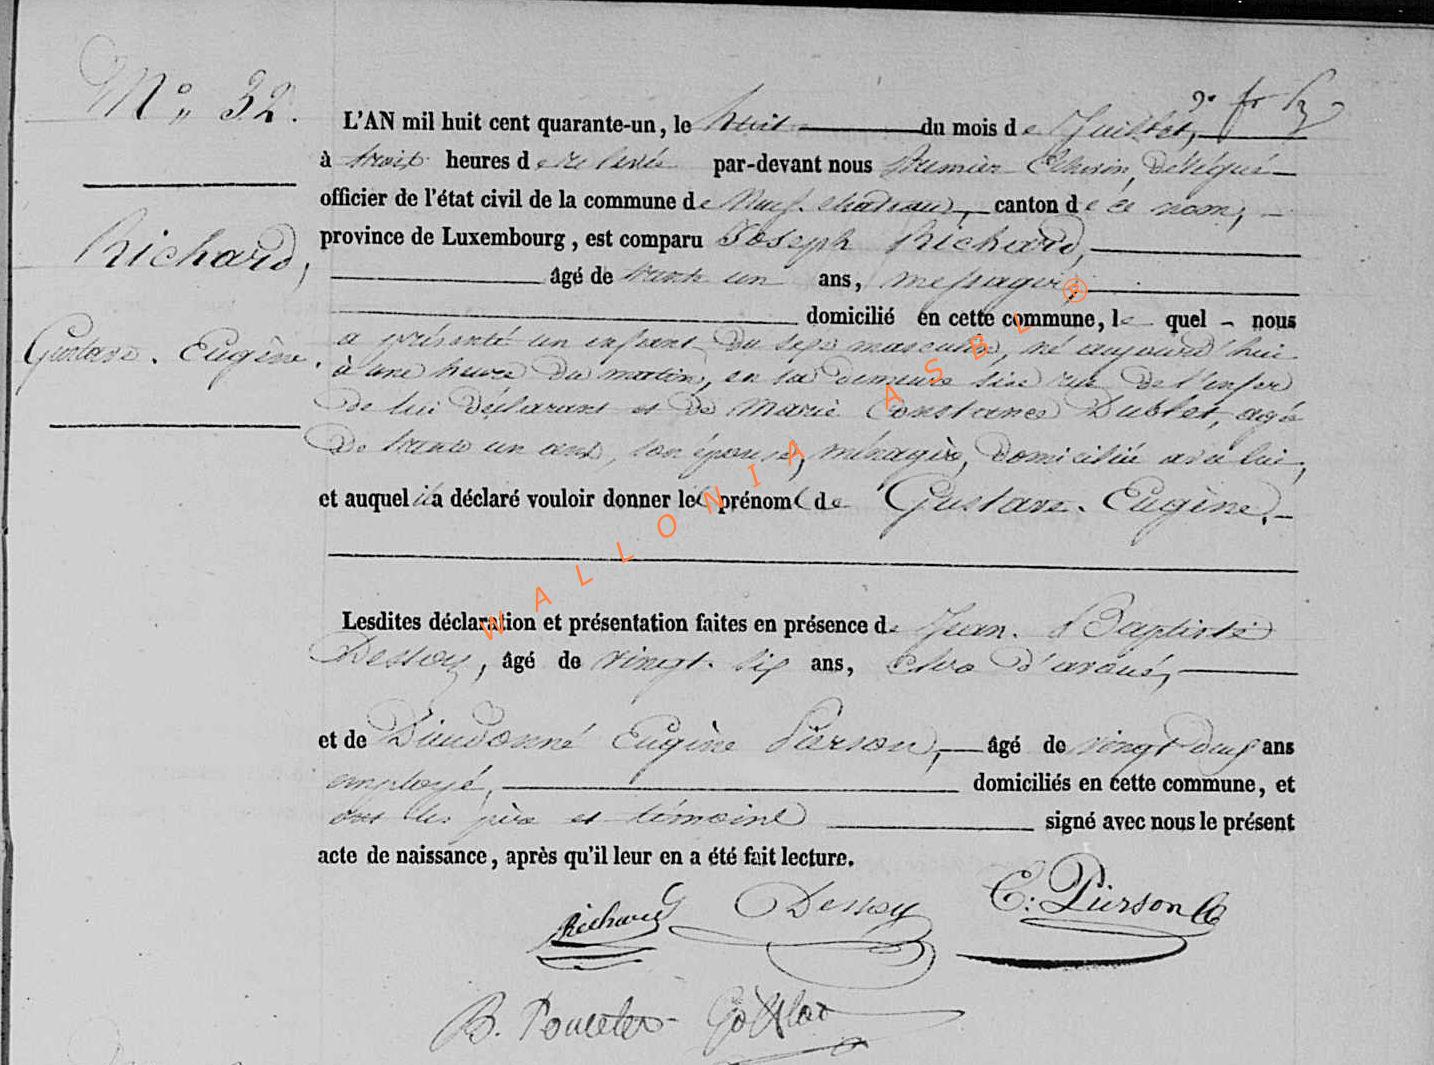 N° 32.
L'AN mil huit cent quarante-un, le huit du mois de Juillet,
à trois heures de relevée par-devant nous Premier Echevin, délégué
officier de l'état civil de la commune de Neufchateau, canton de ce nom,
Richard,
province de Luxembourg, est comparu Joseph Richard,
âgé de trente un ans, messager,
domicilié en cette commune, le quel nous
Gustave. Eugène.
a présenté un enfant du sexe masculin, né aujourd'hui
à une heure du matin, en sa demeure sise rue de l'enfer
de lui déclarant et de Marie Constance Dublet, agée
de trente un ans, son épouse, ménagère, domiciliée avec lui,
et auquel il a déclaré vouloir donner les prénoms de Gustave. Eugène.
Lesdites déclaration et présentation faites en présence de Jean. Baptiste
Dessoy, âgé de vingt. six ans, clerc d'avoué,
et de Dieudonné Eugène Pierson, âgé de vingt deux ans
employé, domiciliés en cette commune, et
ont les père et témoins signé avec nous le présent
acte de naissance, après qu'il leur en a été fait lecture.
Richard Dessoy E: Pierson
B. Poncelet
WALLONIA ASBL ®